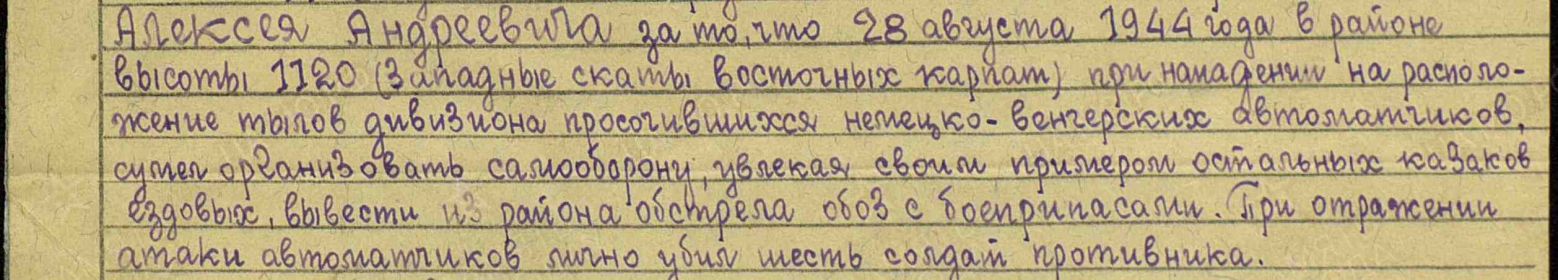 Алексея Андреевича за то, что 28 августа 1944 года в районе
высоты 1120 (Западные скаты восточных карпат) при нападении на располо-
жение тылов дивизиона просочившихся немецко-венгерских автоматчиков,
сумел организовать самооборону, увлекая своим примером остальных казаков
ездовых, вывести из района обстрела обоз с боеприпасами. При отражении
атаки автоматчиков лично убил шесть солдат противника.